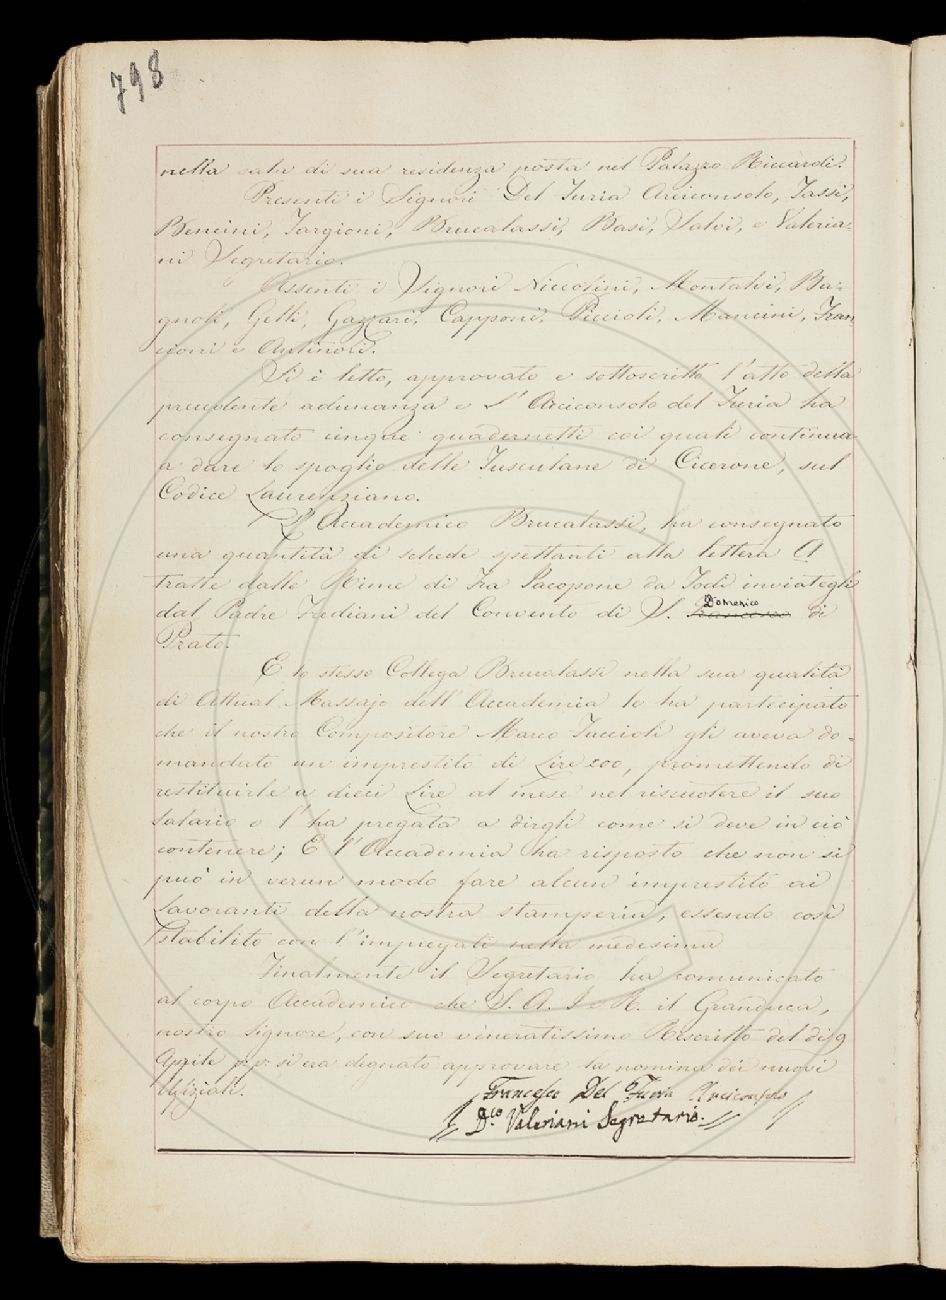 798
nella sala di sua residenza posta nel Palazzo Riccardi.
Presenti i Signori Del Furia Arciconsolo, Tassi,
Bencini, Targioni, Brucalassi, Basi, Salvi, e Valeria-
ni Segretario.
Assenti i Signori Niccolini, Montalvi, Ba-
gnoli, Gelli, Gazzari, Capponi, Piccioli, Mancini, Fran
cioni e Antinori.
Si è letto, approvato e sottoscritto l'atto della
precedente adunanza e l'Arciconsolo del Furia ha
consegnato cinque quadernetti coi quali continua
a dare lo spoglio delle Tusculane di Cicerone, sul
Codice Laurenziano.
L'Accademico Brucalassi, ha consegnato
una quantità di schede spettanti alla lettera A
tratte dalle Rime di Fra Jacopone da Todi inviategli
dal Padre Frediani del Convento di S. Francesco Domenico di
Prato.
E lo stesso Collega Brucalassi nella sua qualità
di Attual Massajo dell'Accademia le ha partecipato
che il nostro Compositore Marco Tuccioli gli aveva do-
mandato un imprestito di Lire 200, promettendo di
restituirle a dieci Lire al mese nel riscuotere il suo
salario e l'ha pregata a dirgli come si deve in ciò
contenere; E l'Accademia ha risposto che non si
può in verun modo fare alcun imprestito ai
lavoranti della nostra stamperia, essendo così
stabilito con l'impiegati nella medesima
Finalmente il Segretario ha comunicato
al corpo Accademico che S. A. I. e R. il Granduca,
nostro Signore, con suo veneratissimo Rescritto del dì 9
Aprile p.p. si era degnato approvare la nomina dei nuovi
Ufiziali.
Francesco Del Furia Arciconsolo
D.co Valeriani Segretario.